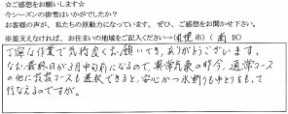 ☆ご感想をお願いします☆
今シーズンの排雪はいかがでしたか？
お客様の声が、私たちの原動力になっています。ぜひ、ご感想をお聞かせ下さい。
※差支えなければ、お住まいの地域をご記入ください→(札幌市)(南区)
丁寧な作業で気持良くお願いでき、ありがとうございます。
なお、最終日が3月中旬になるので、異常気象の昨今、通常コース
の他に コースも選択できると、安心かつ水割りも中とりをもって
行なえるのですが。